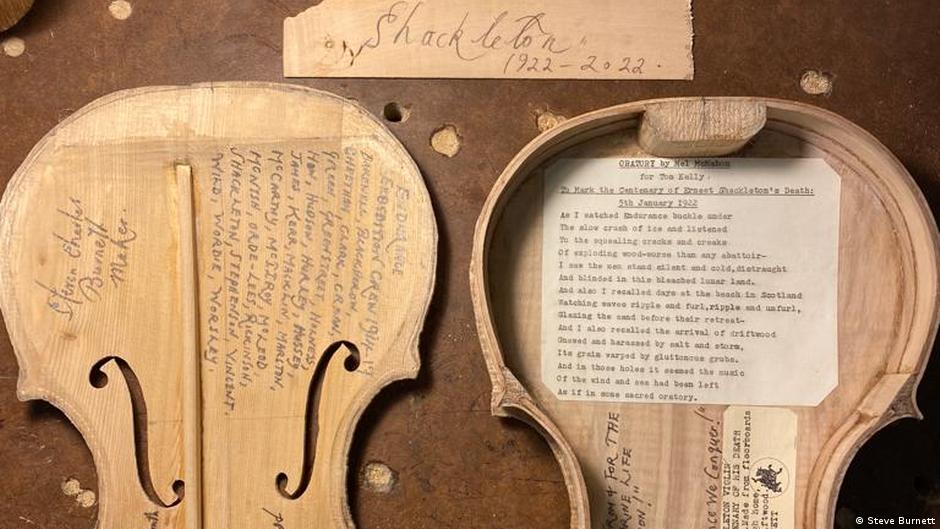 "Shackleton"
1922-2022.
ENDURANCE
EXPEDITION CREW 1914-17
BAKEWELL, BLACKBORROW
CHEETHAM, CLARK, CREAN,
GREEN, GREENSTREET,
HOW, HUDSON, HURLEY, HUSSEY,
JAMES, KERR, MACKLIN, MARSTON,
MCCARTHY, MCILROY, MCLEOD
MCNISH, ORDE-LEES, RICKINSON,
SHACKLETON, STEPHENSON, VINCENT,
WILD, WORDIE, WORSLEY.
Steve Charles
Burnett
Maker
ORATORY by Mel McMahon
for Tom Kelly.
To Mark the Centenary of Ernest Shackleton's Death:
5th January 1922
As I watched Endurance buckle under
The slow crush of ice and listened
To the squealing cracks and creaks
Of exploding wood-worse than any abattoir-
I saw the men stand silent and cold, distraught
And blinded in this bleached lunar land.
And also I recalled days at the beach in Scotland
Watching waves ripple and furl, ripple and unfurl,
Glazing the sand before their retreat-
And I also recalled the arrival of driftwood
Gnawed and harassed by salt and storm,
Its grain warped by gluttonous grubs.
And in those holes it seemed the music
Of the wind and sea had been left
As if in some sacred oratory.
FOR THE
LIFE
We Conquer!"
VIOLIN
OF HIS DEATH
made from floorboards
home,
driftwood.
© Steve Burnett